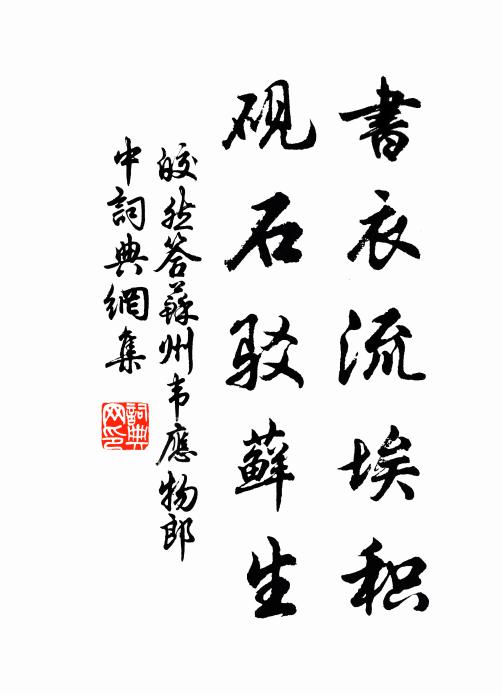 書衣流埃积
砚石驳蘚生
皎然答蘇州韦應物郎
中詞典網集
詞典
网印